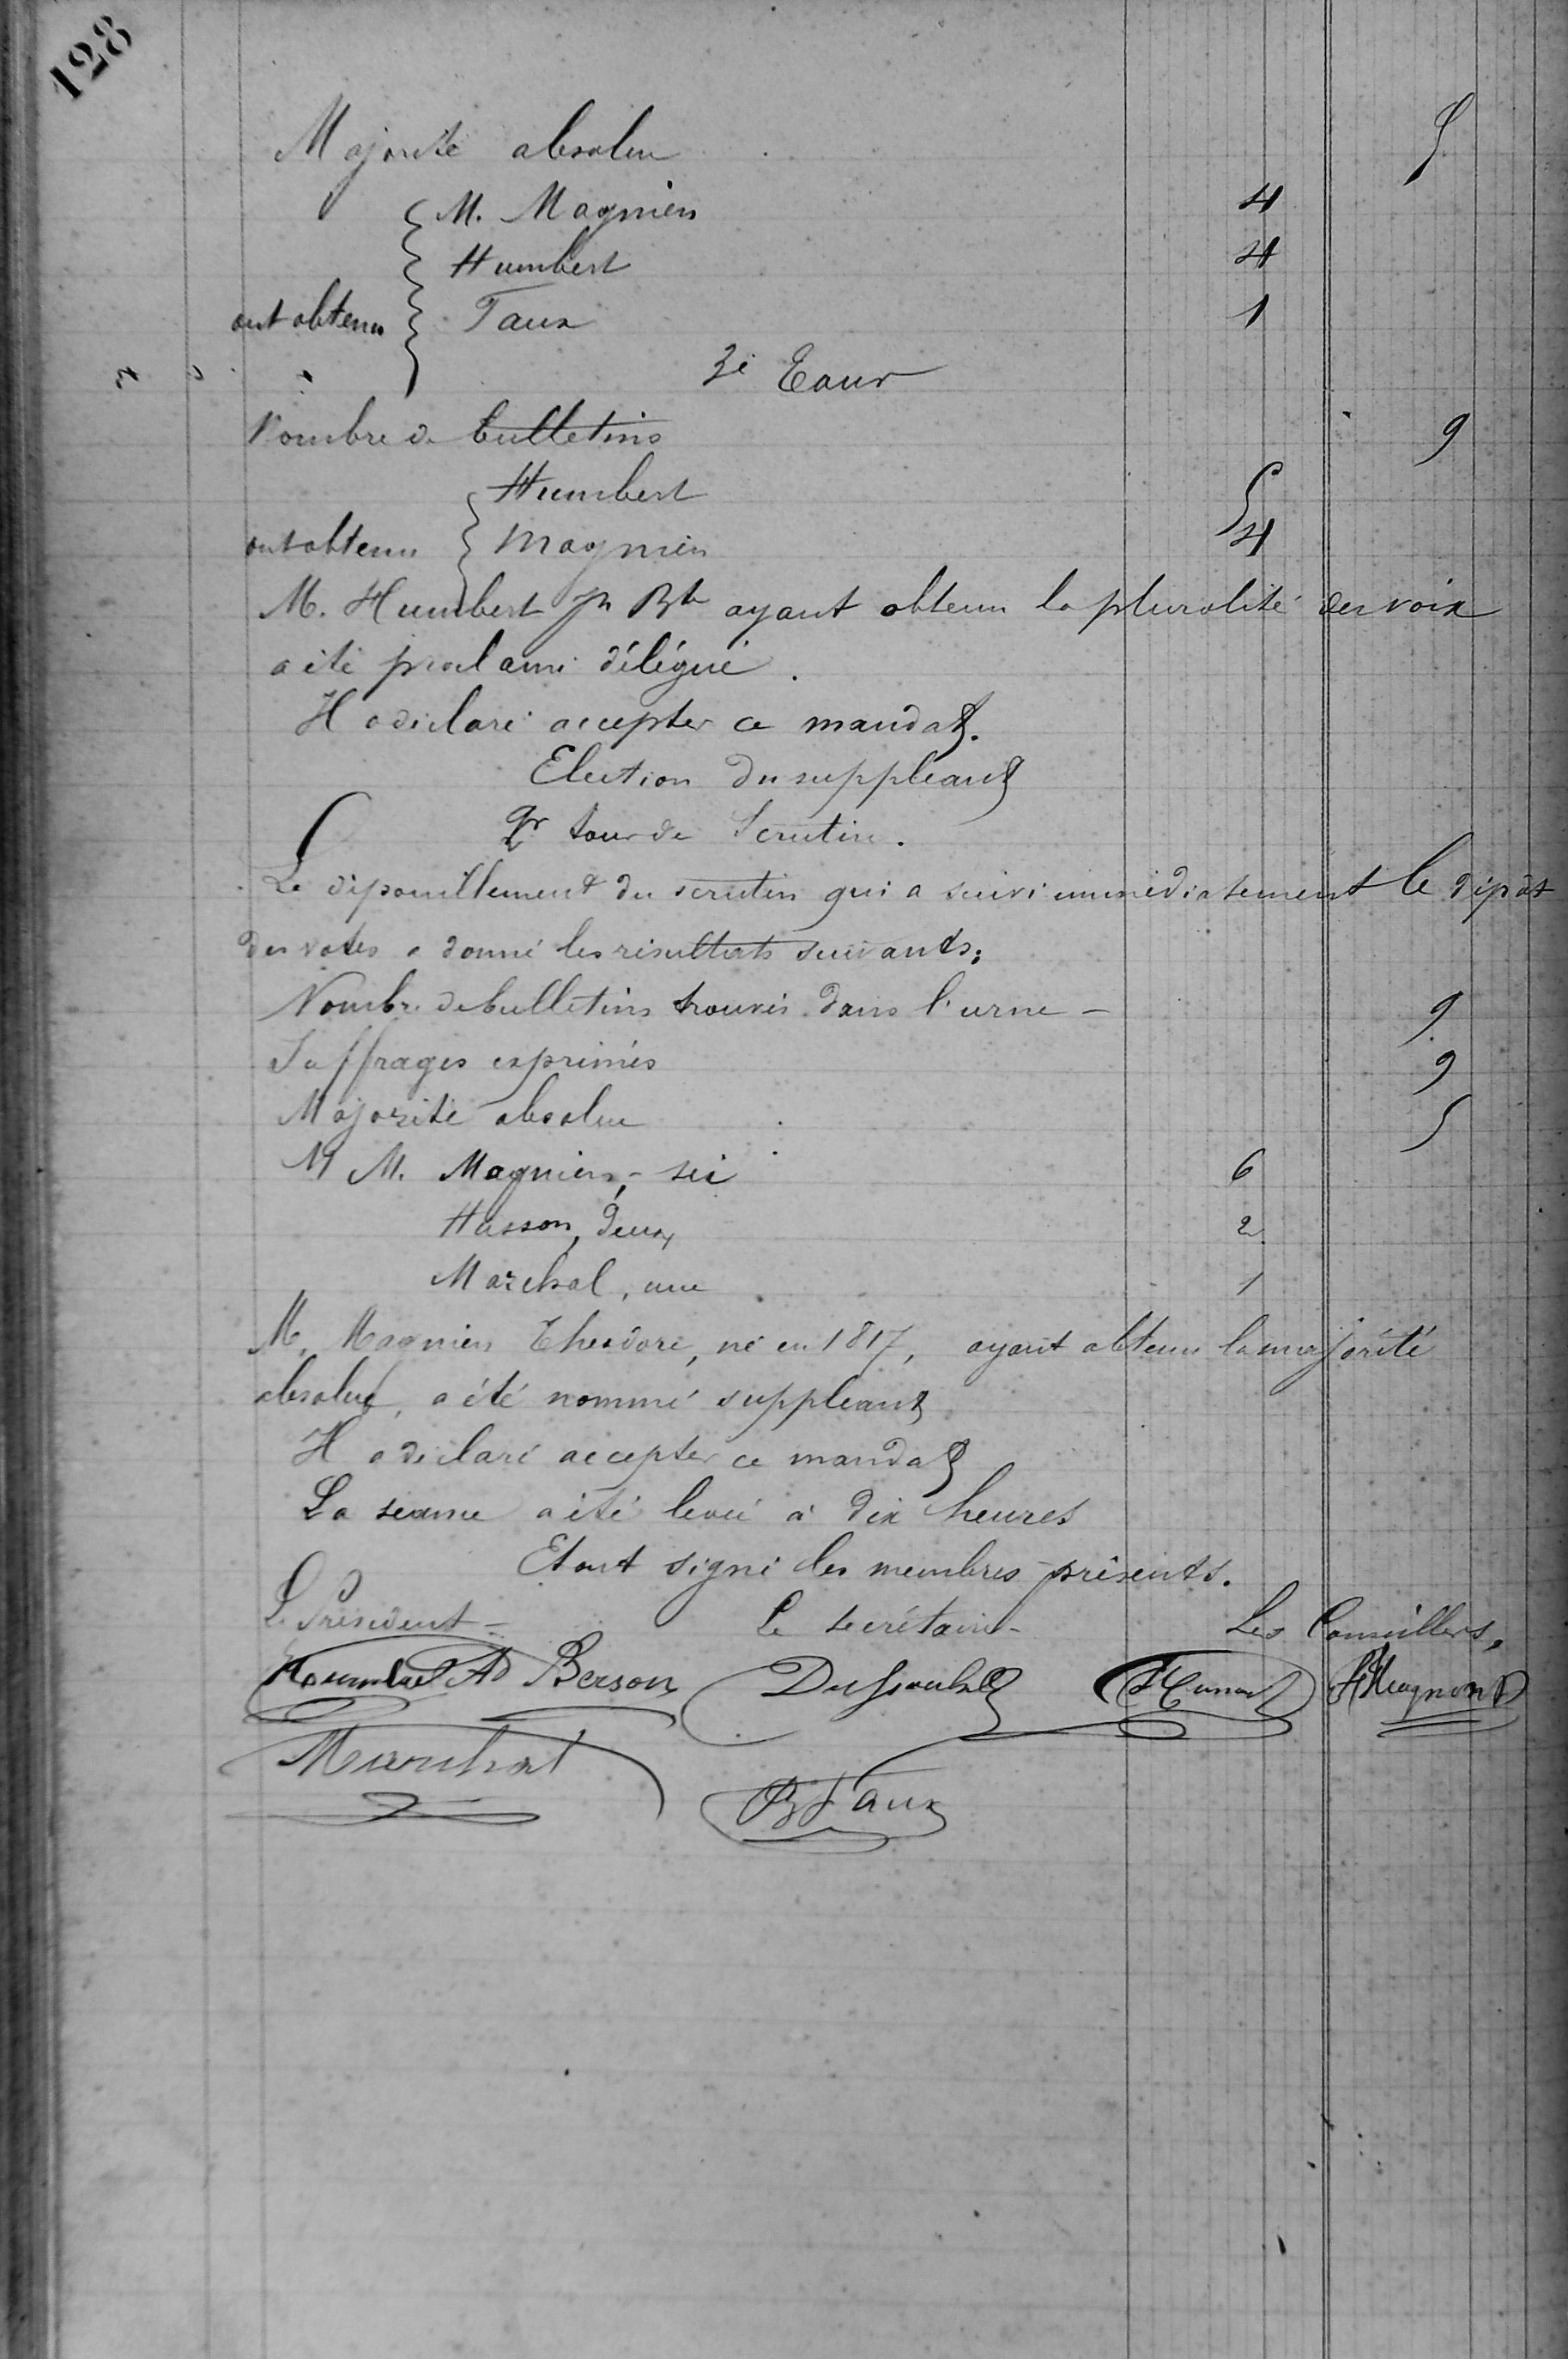 128
Majorité absolue 5
M. Magnien 4
Humbert 4
ont obtenu Taux 1
3e Tour
Nombre de bulletins 9
Humbert 5
ont obtenu Magnien 4
M. Humbert Jn Bte ayant obtenu la pluralité des voix
a été proclamé délégué.
Il a déclaré accepter ce mandat.
Election du suppléant
1er tour de Scrutin.
Le dépouillement du scrutin qui a suivi immédiatement le dépôt
des votes a donné les résultats suivants:
Nombre de bulletins trouvés dans l'urne - 9
Suffrages exprimés 9
Majorité absolue 5
M M. Magnien, - six 6
Husson, deux 2
Marchal, une 1
M. Magnien Theodore, né en 1817, ayant obtenu la majorité
absolue, a été nommé suppléant
Il a déclaré accepter ce mandat
La séance a été levée à dix heures
Et ont signé les membres présents.
Le Président - Le secrétaire - Les Conseillers,
Humbert AD Berson
Marchal
B Taux